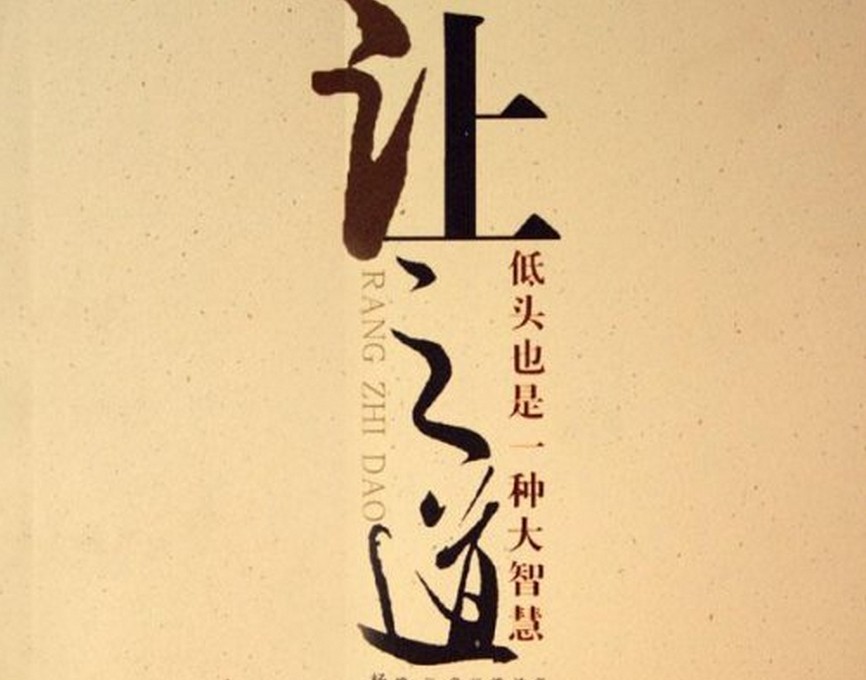 让之道
RANG ZHI DAO
低头也是一种大智慧